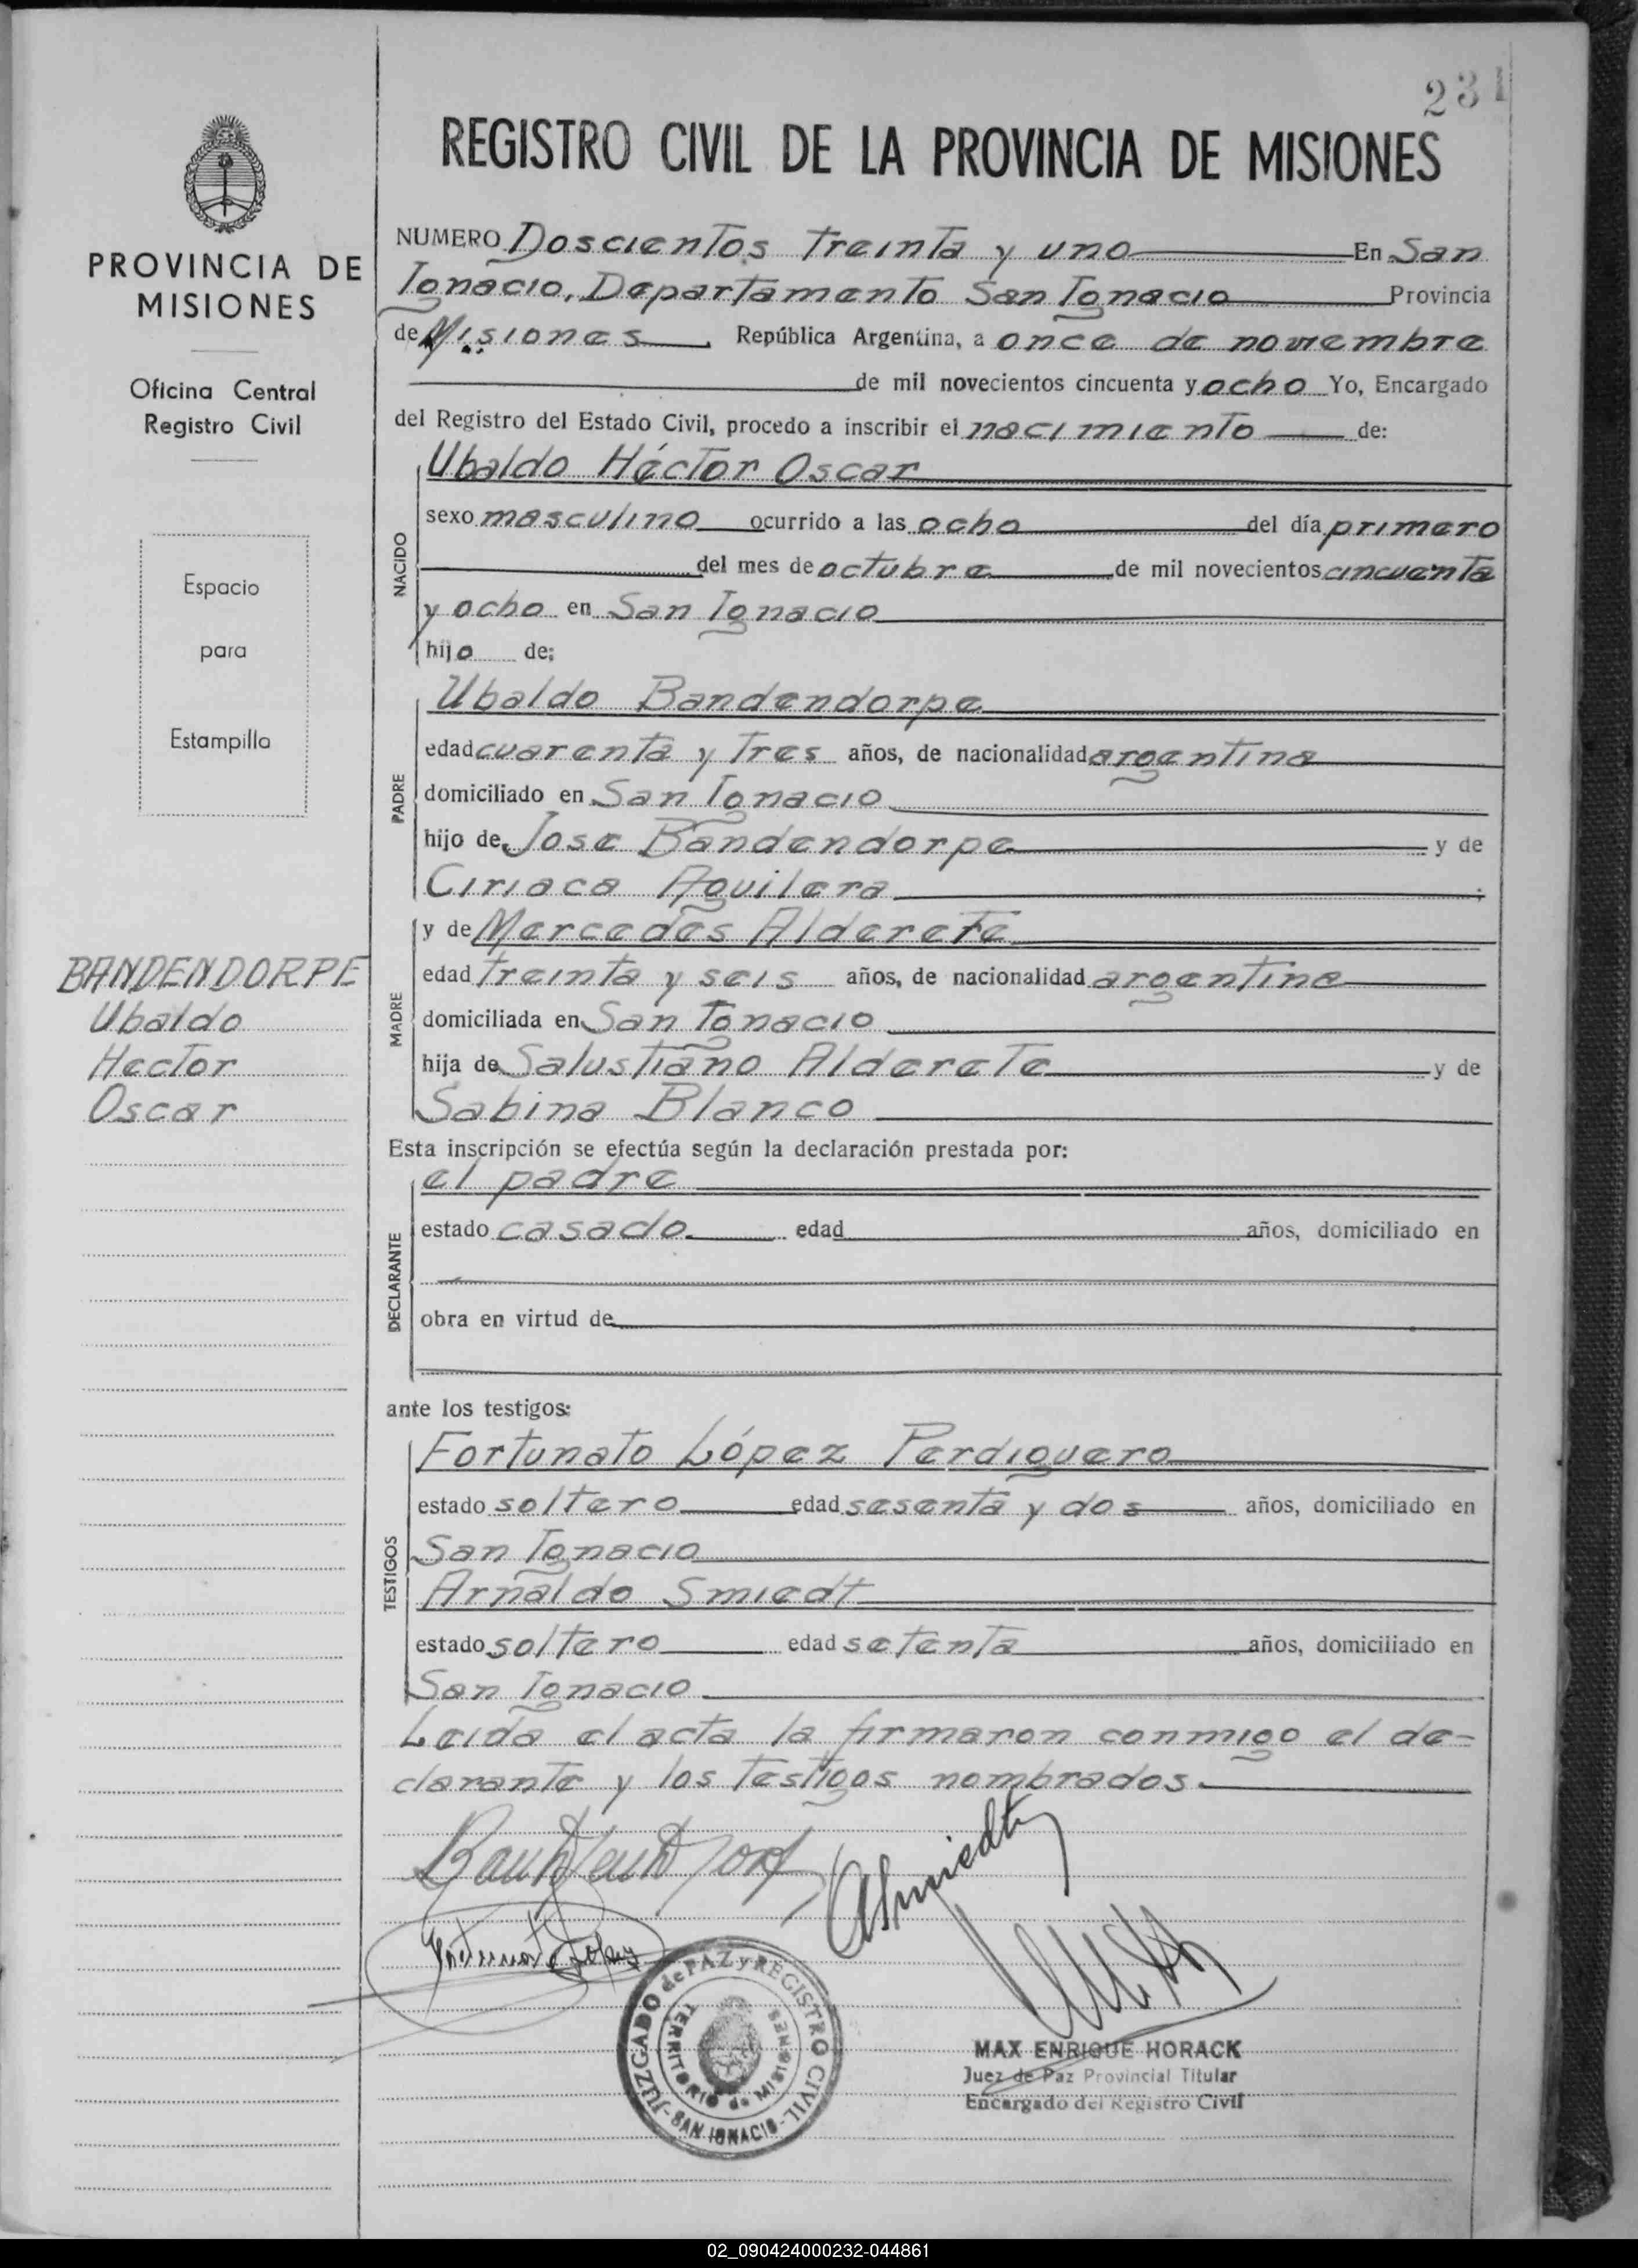 231
REGISTRO CIVIL DE LA PROVINCIA DE MISIONES
PROVINCIA DE
MISIONES
Oficina Central
Registro Civil
Espacio
para
Estampilla
BANDENDORPE
Ubaldo
Hector
Oscar
NUMERO Doscientos treinta y uno En San
Ignacio, Departamento San Ignacio Provincia
de Misiones, República Argentina, a once de noviembre
de mil novecientos cincuenta y ocho Yo, Encargado
del Registro del Estado Civil, procedo a inscribir el nacimiento de:
NACIDO
Ubaldo Héctor Oscar
sexo masculino ocurrido a las ocho del día primero
del mes de octubre de mil novecientos cincuenta
y ocho en San Ignacio
hijo de;
PADRE
Ubaldo Bandendorpe
edad cuarenta y tres años, de nacionalidad argentina
domiciliado en San Ignacio
hijo de Jose Bandendorpe y de
Ciriaca Aguilera
MADRE
y de Mercedes Alderete
edad treinta y seis años, de nacionalidad argentina
domiciliada en San Ignacio
hija de Salustiano Alderete y de
Sabina Blanco
Esta inscripción se efectúa según la declaración prestada por:
DECLARANTE
el padre
estado casado edad años, domiciliado en
obra en virtud de
ante los testigos:
TESTIGOS
Fortunato López Perdiguero
estado soltero edad sesenta y dos años, domiciliado en
San Ignacio
Arnaldo Smiedt
estado soltero edad setenta años, domiciliado en
San Ignacio
Leida el acta la firmaron conmigo el de-
clarante y los testigos nombrados.
ASmiedt
Fortunato Lopez
JUZGADO de PAZ y REGISTRO CIVIL
TERRITORIO de MISIONES
- SAN IGNACIO -
MAX ENRIQUE HORACK
Juez de Paz Provincial Titular
Encargado del Registro Civil
02_090424000232-044861